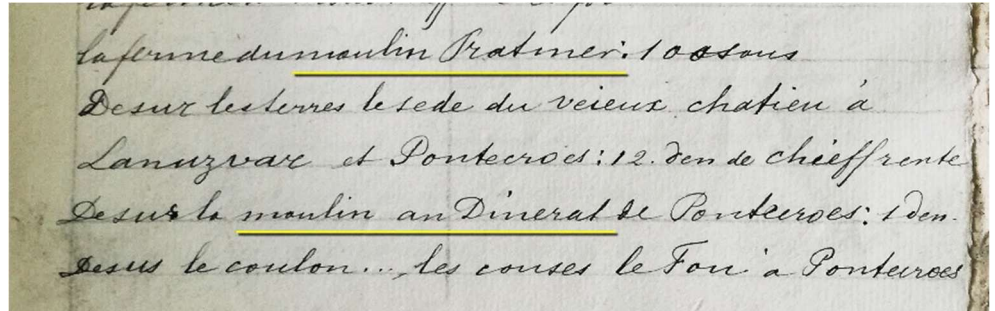 la ferme du moulin Pratmer: 100 sous
Desur les terres le sede du veieux chatieu à
Lanuzvar et Pontecroes: 12. den de chieffrente
Desus le moulin an Dinerat de Ponteeroes: 1 den.
Desus le coulon... les couses le Fou a Pontecroes